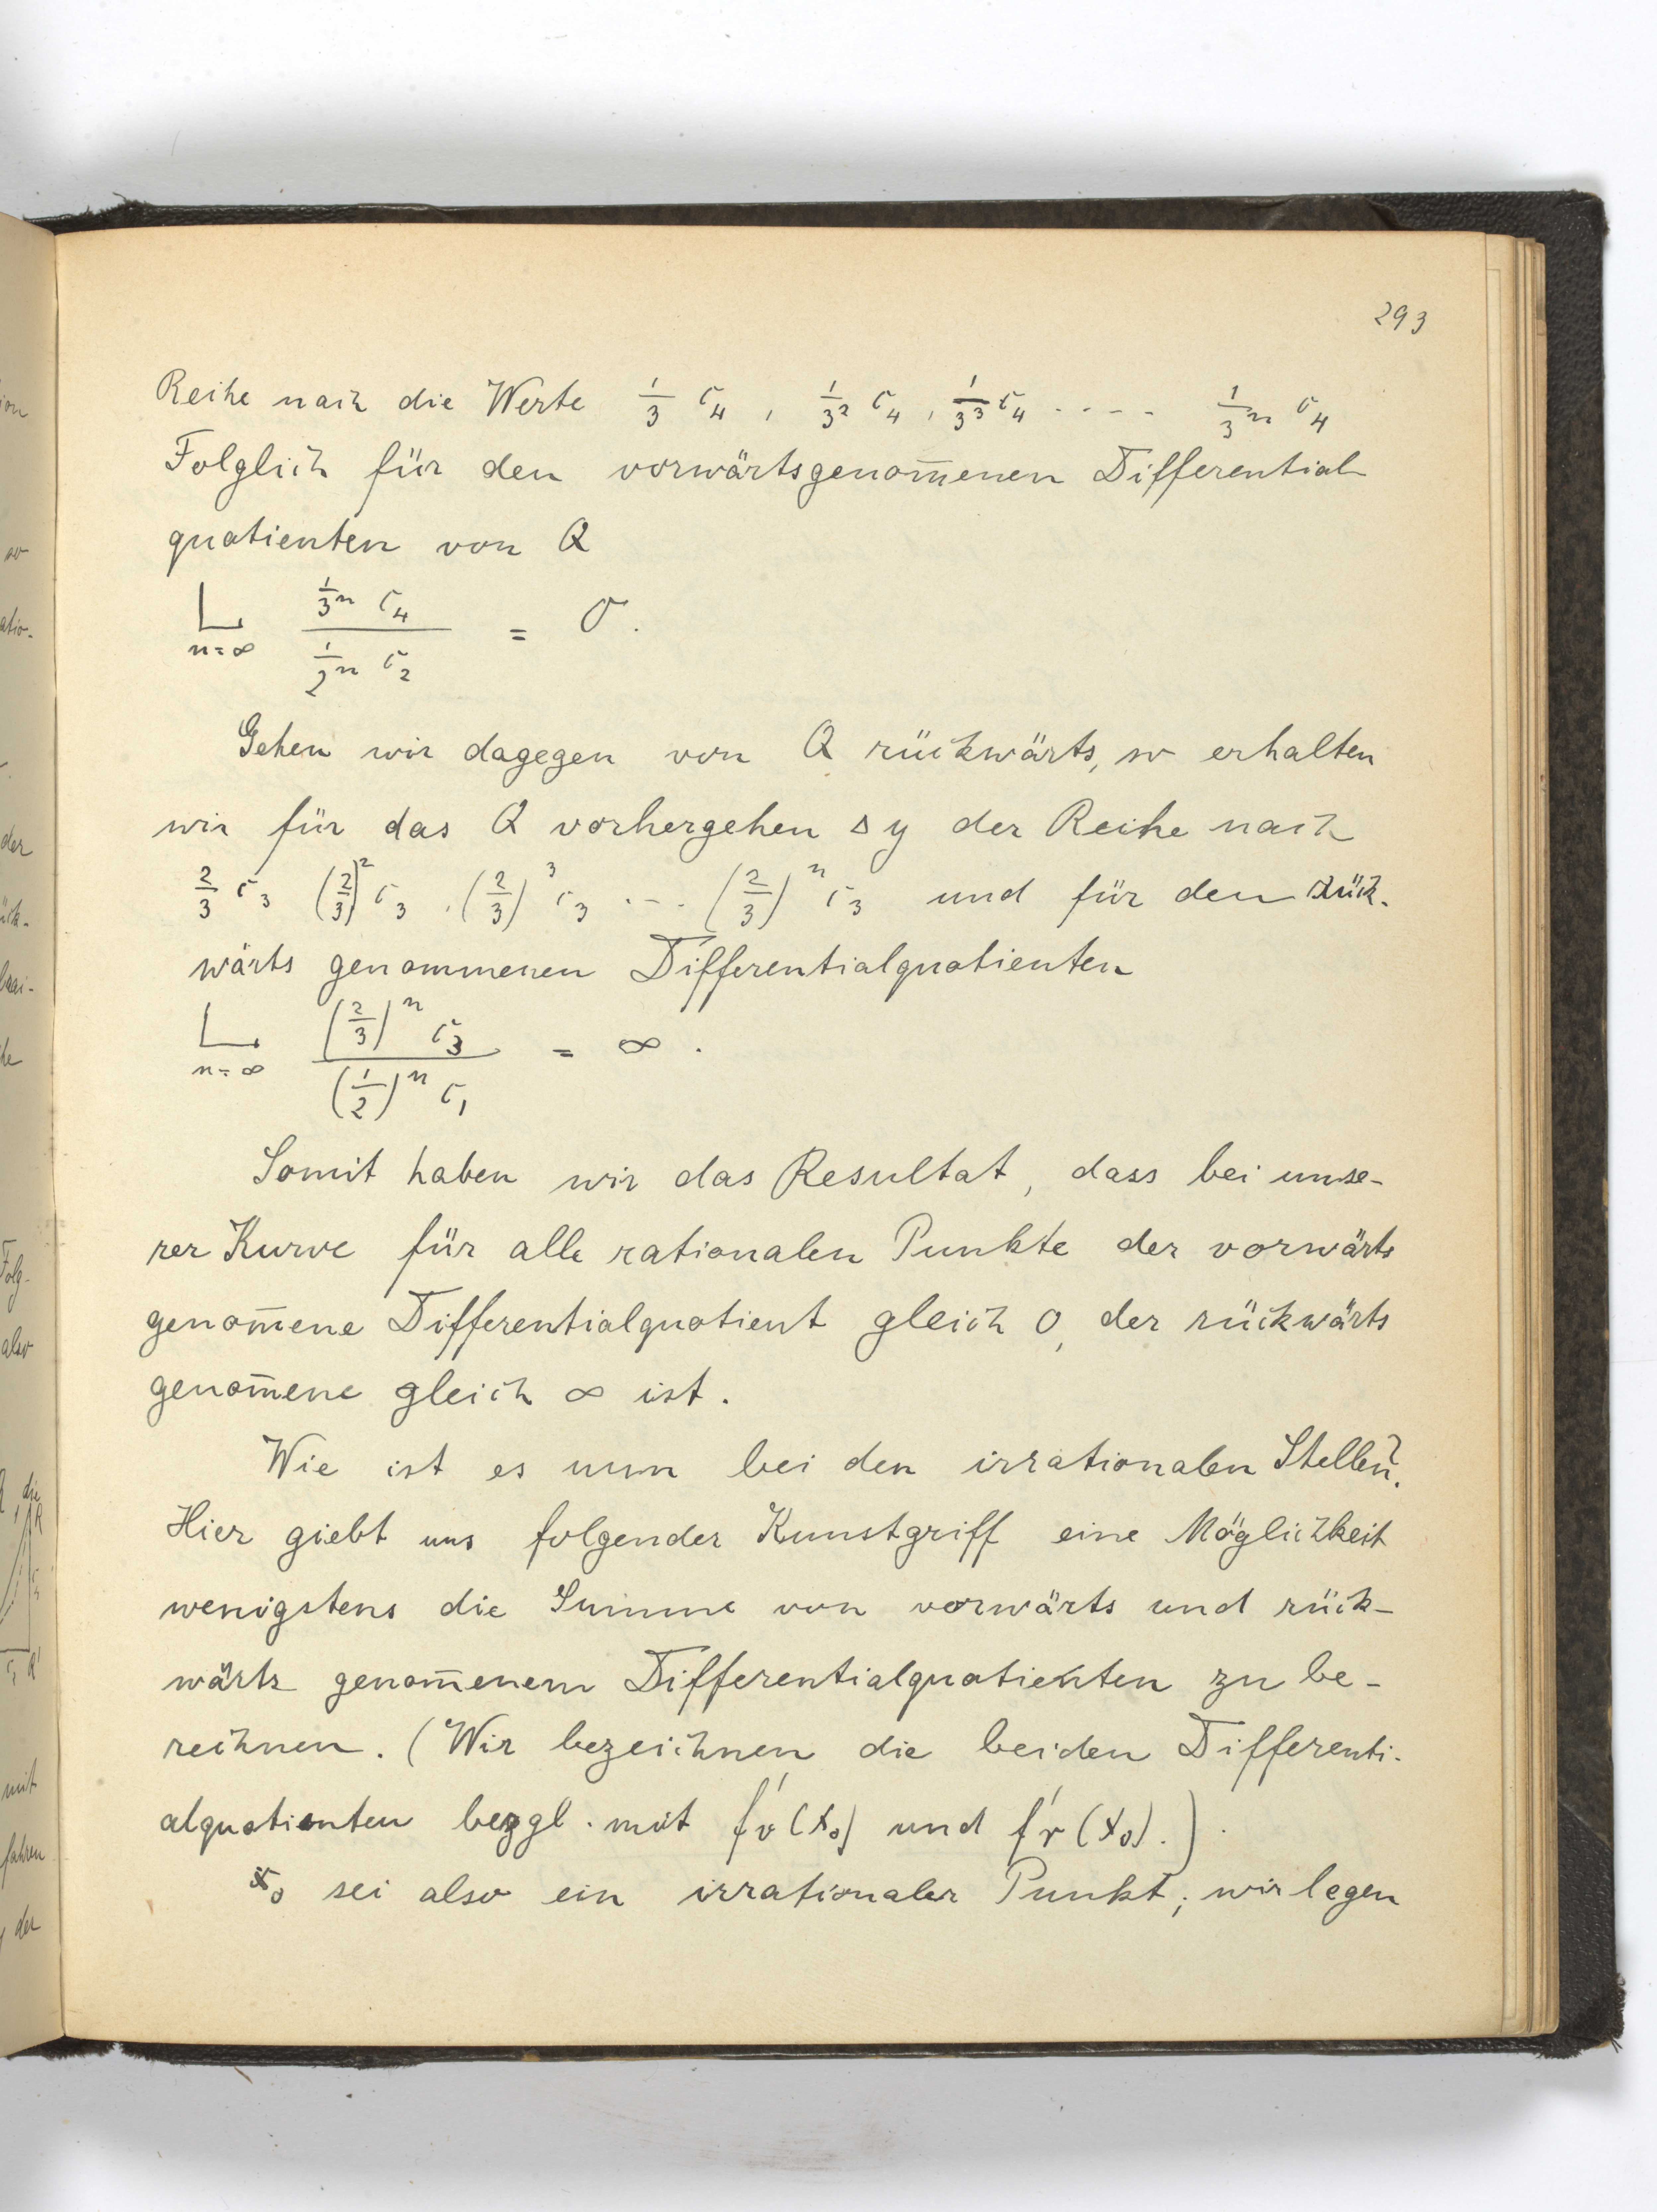 293
Reihe nach die Werte 1/3 c₄, 1/3² c₄, 1/3³ c₄ ---- 1/3ⁿ c₄
Folglich für den vorwärtsgenom̄enen Differential
quotienten von Q
L n=∞ (1/3ⁿ c₄)/(1/2ⁿ c₂) = 0.
Gehen wir dagegen von Q rückwärts, so erhalten
wir für das Q vorhergehen Δy der Reihe nach
2/3 c₃ (2/3)² c₃ . (2/3)³ c₃ --- (2/3)ⁿ c₃ und für den rück-
wärts genommenen Differentialquotienten
L n=∞ ((2/3)ⁿ c₃)/((1/2)ⁿ c₁) = ∞.
Somit haben wir das Resultat, dass bei unse-
rer Kurve für alle rationalen Punkte der vorwärts
genom̄ene Differentialquotient gleich 0, der rückwärts
genom̄ene gleich ∞ ist.
Wie ist es nun bei den irrationalen Stellen?
Hier giebt uns folgender Kunstgriff eine Möglichkeit
wenigstens die Summe von vorwärts und rück-
wärts genom̄enem Differentialquotienten zu be-
rechnen. (Wir bezeichnen die beiden Differenti-
alquotienten bezgl. mit f'v(x₀) und f'r(x₀).)
x₀ sei also ein irrationaler Punkt; wir legen